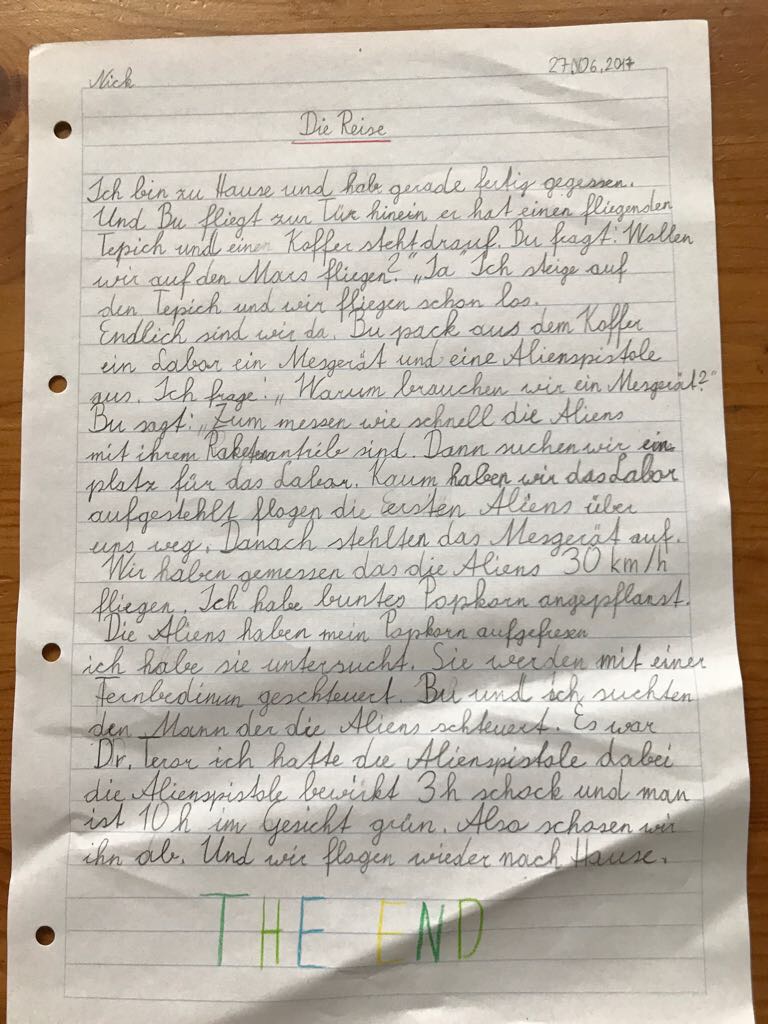 Nick
27.NO6.2017
Die Reise
Ich bin zu Hause und hab gerade fertig gegessen.
Und Bu fliegt zur Tür hinein er hat einen fliegenden
Tepich und einen Koffer steht drauf. Bu fragt: Wollen
wir auf den Mars fliegen?" „Ja" Ich steige auf
den Tepich und wir fliegen schon los.
Endlich sind wir da. Bu pack aus dem Koffer
ein Labor ein Mesgerät und eine Alienspistole
aus. Ich frage: „Warum brauchen wir ein Mesgerät?"
Bu sagt: „Zum messen wie schnell die Aliens
mit ihrem Raketenantrib sind. Dann suchen wir ein
platz für das Labor. Kaum haben wir das Labor
aufgestehlt flogen die ersten Aliens über
uns weg. Danach stehlten das Mesgerät auf.
Wir haben gemessen das die Aliens 30 km/h
fliegen. Ich habe buntes Popkorn angepflanst.
Die Aliens haben mein Popkorn aufgefresen
ich habe sie untersucht. Sie werden mit einer
Fernbedinun geschteuert. Bu und ich suchten
den Mann der die Aliens schteuert. Es war
Dr. Teror ich hatte die Alienspistole dabei
die Alienspistole bewirkt 3h schock und man
ist 10 h im Gesicht grün. Also schosen wir
ihn ab. Und wir flogen wieder nach Hause.
THE END